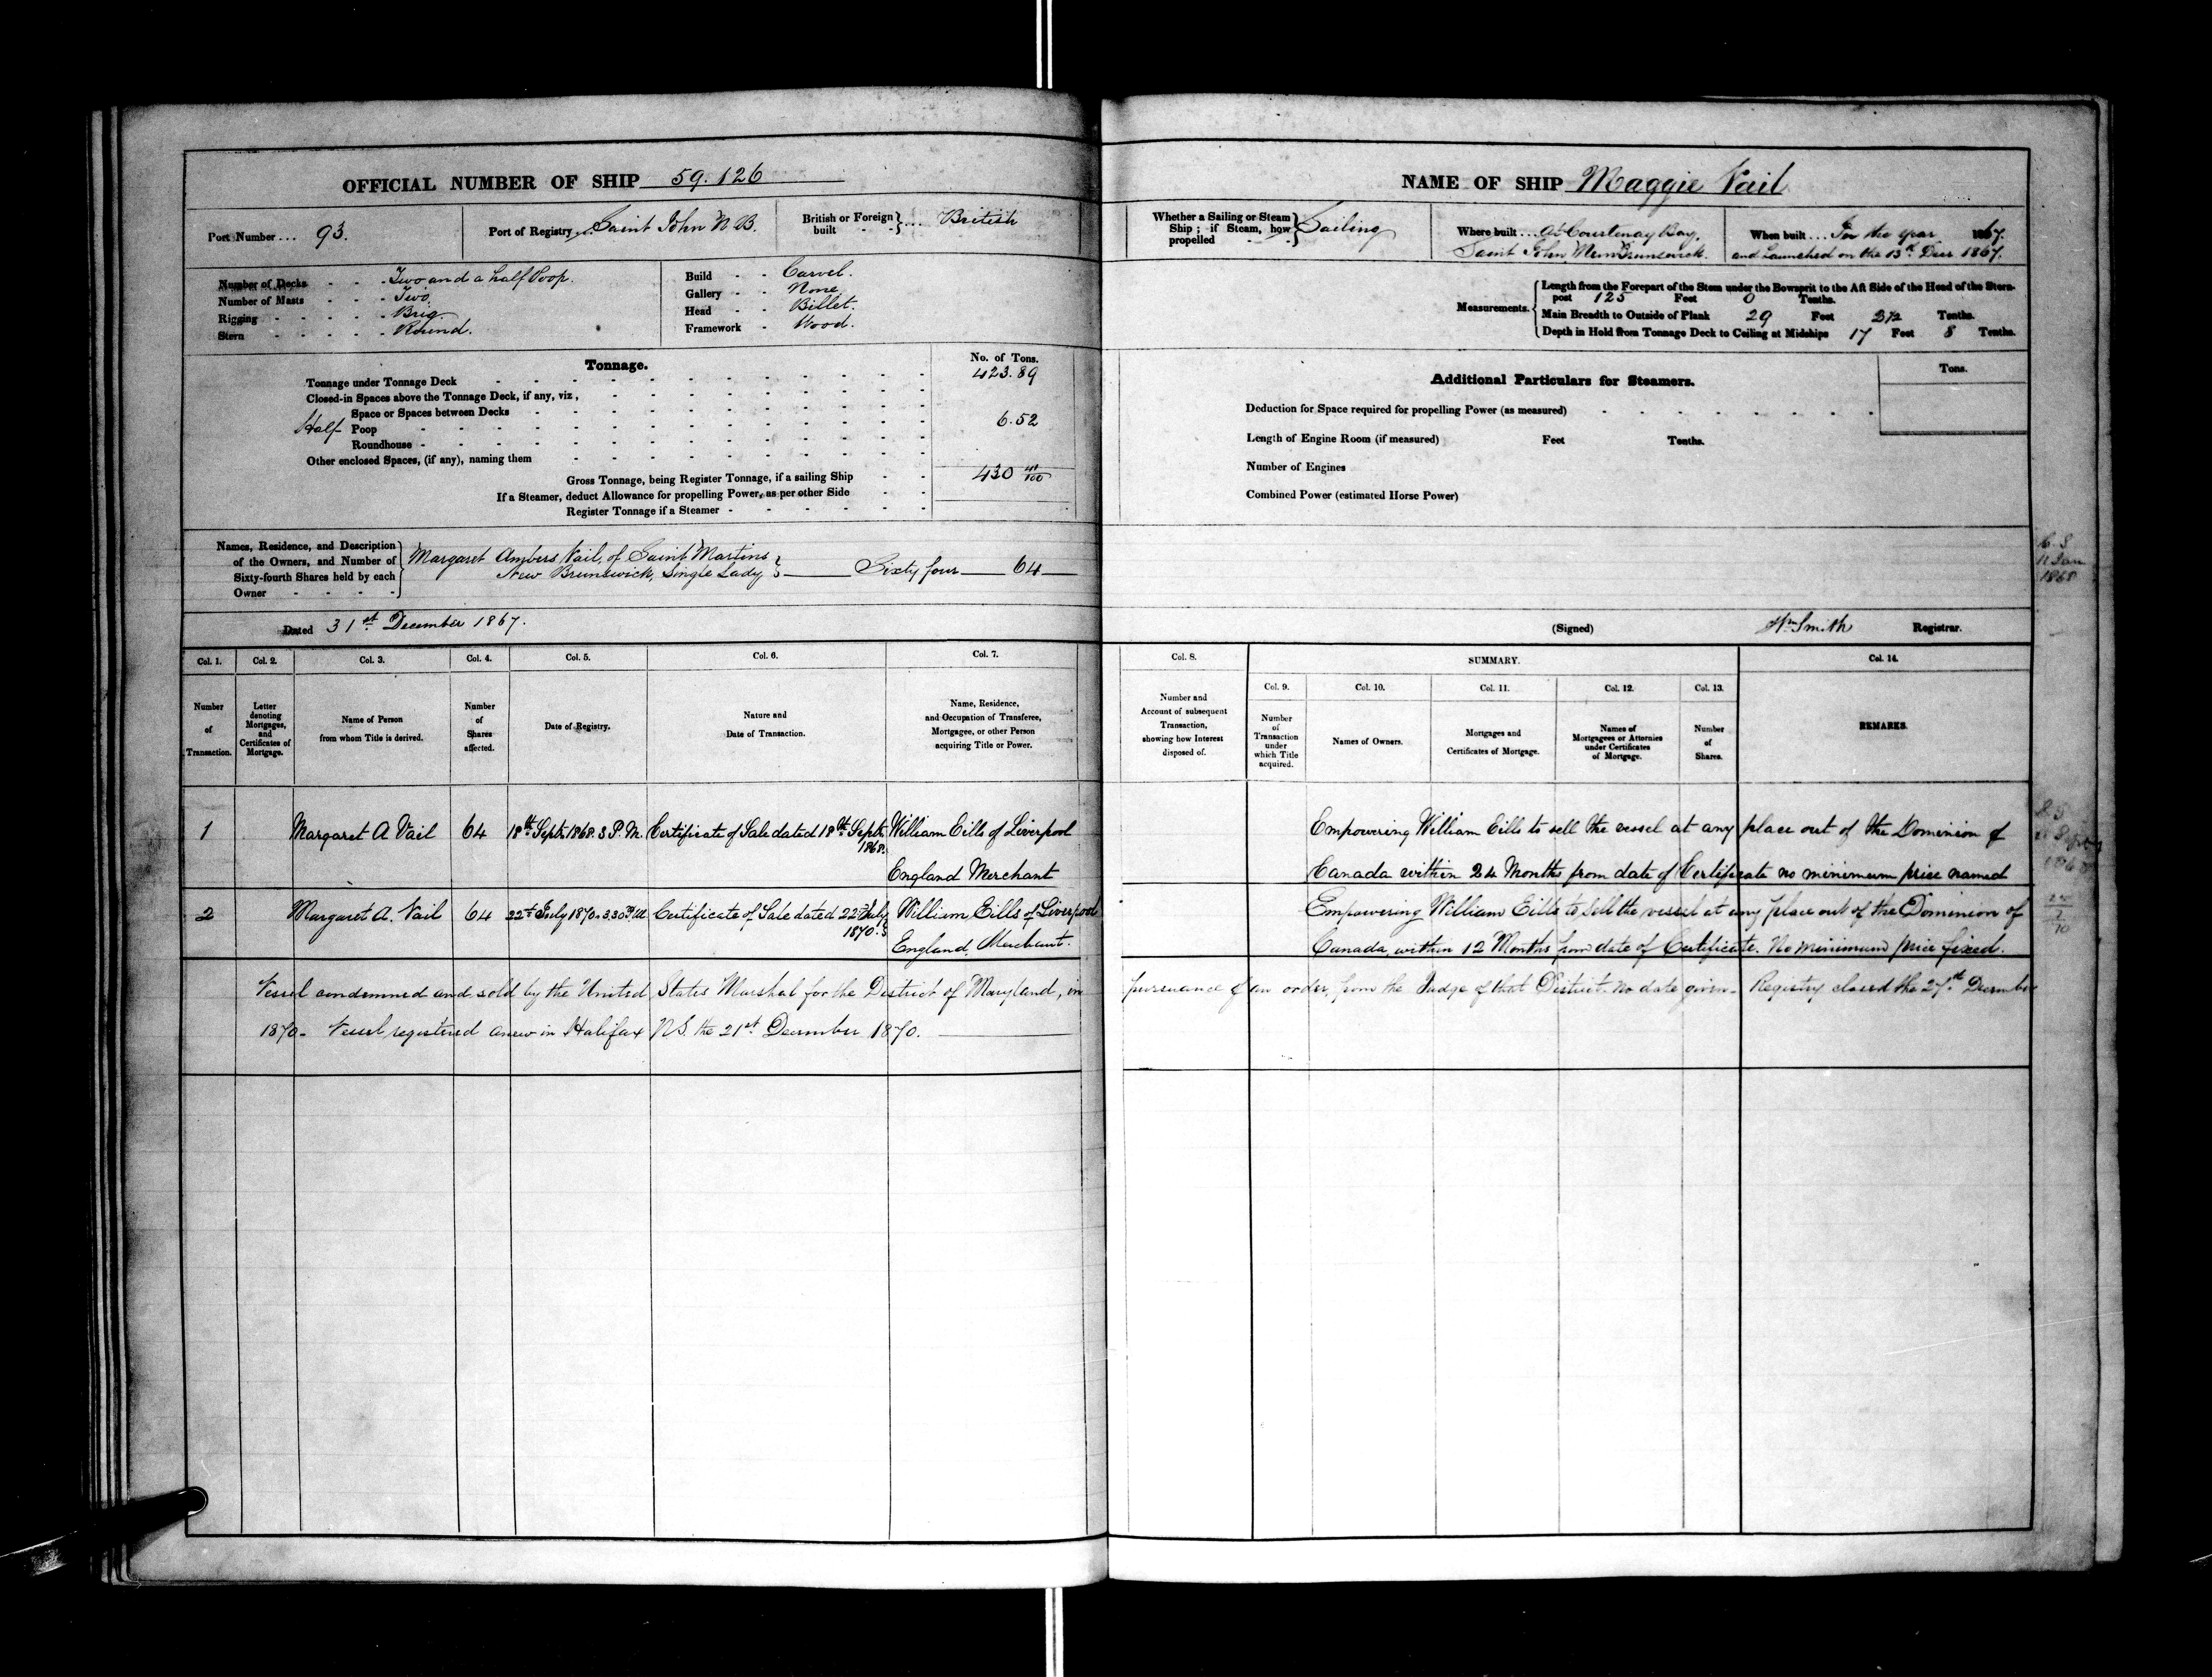 OFFICIAL NUMBER OF SHIP 59.126
Port Number ... 93.
Port of Registry ... Saint John N.B.
British or Foreign built } ... British
Number of Decks - - - Two and a half Poop.
Number of Masts - - - Two.
Rigging - - - - - Brig
Stern - - - - - Round.
Build - - Carvel.
Gallery - - None
Head - - Billet.
Framework - Wood.
Tonnage.
No. of Tons.
Tonnage under Tonnage Deck 423.89
Closed-in Spaces above the Tonnage Deck, if any, viz,
Space or Spaces between Decks
Half Poop 6.52
Roundhouse
Other enclosed Spaces, (if any), naming them
Gross Tonnage, being Register Tonnage, if a sailing Ship 430 41/100
If a Steamer, deduct Allowance for propelling Power, as per other Side
Register Tonnage if a Steamer
Names, Residence, and Description
of the Owners, and Number of
Sixty-fourth Shares held by each
Owner
Margaret Ambers Vail, of Saint Martins
New Brunswick, Single Lady } Sixty four 64
Dated 31st December 1867.
Col. 1. Col. 2. Col. 3. Col. 4. Col. 5. Col. 6. Col. 7.
Number of Transaction.
Letter denoting Mortgages, and Certificates of Mortgage.
Name of Person from whom Title is derived.
Number of Shares affected.
Date of Registry.
Nature and Date of Transaction.
Name, Residence, and Occupation of Transferee, Mortgagee, or other Person acquiring Title or Power.
1 Margaret A Vail 64 18th Sept 1868. 3 P.M. Certificate of Sale dated 18th Sept 1868. William Eills of Liverpool
England Merchant
2 Margaret A. Vail 64 22nd July 1870. 3.30 P.M. Certificate of Sale dated 22nd July 1870. William Eills of Liverpool
England, Merchant.
Vessel condemned and sold by the United States Marshal for the District of Maryland, in
1870- Vessel registered anew in Halifax N.S. the 21st December 1870.
NAME OF SHIP Maggie Vail
Whether a Sailing or Steam
Ship; if Steam, how
propelled } Sailing
Where built ... At Courtenay Bay,
Saint John, New Brunswick.
When built ... In the year 1867.
and Launched on the 13th Decr 1867.
Measurements.
Length from the Forepart of the Stem under the Bowsprit to the Aft Side of the Head of the Stern-
post 125 Feet 0 Tenths.
Main Breadth to Outside of Plank 29 Feet Tenths.
Depth in Hold from Tonnage Deck to Ceiling at Midships 17 Feet 8 Tenths.
Additional Particulars for Steamers.
Tons.
Deduction for Space required for propelling Power (as measured)
Length of Engine Room (if measured) Feet Tenths.
Number of Engines
Combined Power (estimated Horse Power)
11 Jan
1868
(Signed) Wm Smith Registrar.
Col. 8. SUMMARY. Col. 14.
Col. 9. Col. 10. Col. 11. Col. 12. Col. 13.
Number and Account of subsequent Transaction, showing how Interest disposed of.
Number of Transaction under which Title acquired.
Names of Owners.
Mortgages and Certificates of Mortgage.
Names of Mortgagees or Attornies under Certificates of Mortgage.
Number of Shares.
REMARKS.
Empowering William Eills to sell the vessel at any place out of the Dominion of
Canada within 24 Months from date of Certificate no minimum price named
Empowering William Eills to sell the vessel at any place out of the Dominion of
Canada, within 12 Months from date of Certificate. No minimum price fixed.
pursuance of an order, from the Judge of that District. no date given- Registry closed the 27th December